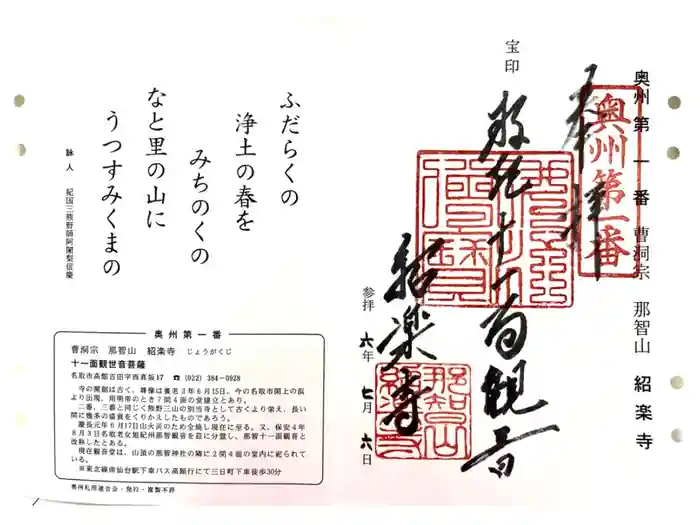 奥州第一番 曹洞宗 那智山 紹楽寺
奉拝
奥州第一番
宝印
十一面観音
紹楽寺
那智山
参拝 六年七月六日
ふだらくの
浄土の春を
みちのくの
なと里の山に
うつすみくまの
詠人 紀国三熊野師阿闍梨信慶
奥州第一番
曹洞宗 那智山 紹楽寺 じょうがくじ
十一面観世音菩薩
名取市高舘吉田字西真坂17 ☎(022)384-0928
寺の開創は古く、尊像は養老3年6月15日、今の名取市閖上の浜
より出現、用明帝のとき7間4面の堂建立とあり。
二番、三番と同じく熊野三山の別当寺として古くより栄え、長い
間に幾多の盛衰をくりかえしたものであろう。
慶長元年6月17日山火災のため全焼し現在に至る。又、保安4年
8月3日名取老女旭紀州那智観音を玆に分霊し、那智十一面観音と
改称したとある。
現在観音堂は、山頂の那智神社の隣に2間4面の堂内に祀られて
いる。
※東北線南仙台駅下車バス高舘行にて三日町下車徒歩30分
奥州札所連合会・発行・複製不許